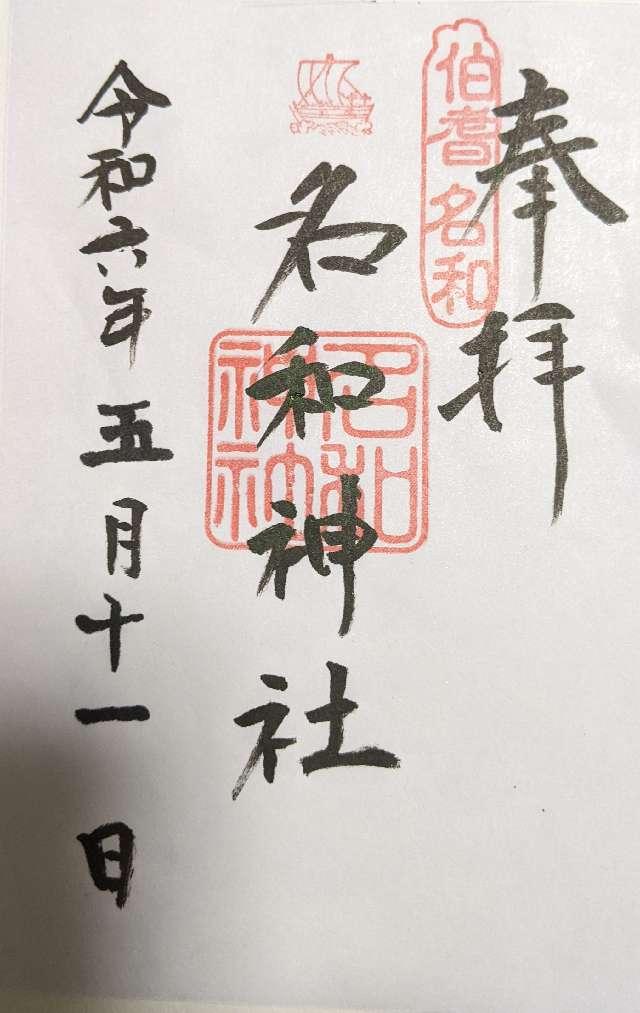 奉拝
伯耆名和
名和神社
名和神社
令和六年五月十一日